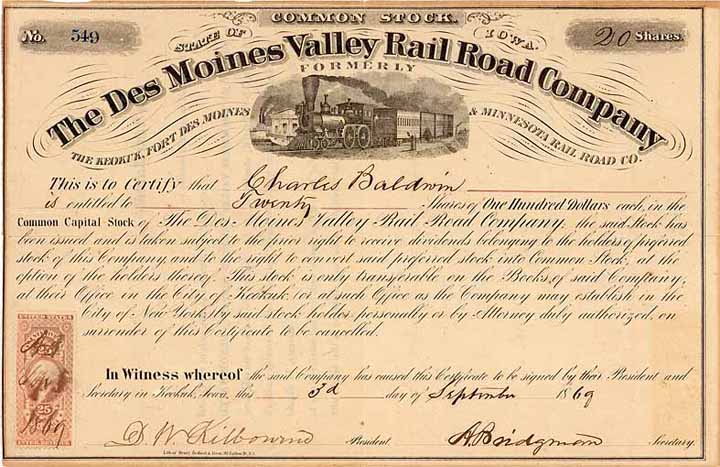 COMMON STOCK.
No. 549
STATE OF IOWA.
20 Shares.
The Des Moines Valley Rail Road Company
FORMERLY
THE KEOKUK, FORT DES MOINES & MINNESOTA RAIL ROAD CO.
This is to Certify that Charles Baldwin
is entitled to Twenty Shares of One Hundred Dollars each, in the
Common Capital Stock of The Des-Moines Valley Rail-Road Company, the said Stock has
been issued and is taken subject to the prior right to receive dividends belonging to the holders of preferred
stock of this Company, and to the right to convert said preferred stock into Common Stock, at the
option of the holders thereof. This stock is only transferable on the Books of said Company,
at their Office in the City of Keokuk, (or at such Office as the Company may establish in the
City of New York) by said stock holders personally or by Attorney duly authorized, on
surrender of this Certificate to be cancelled.
UNITED STATES
25
25
1869
In Witness whereof the said Company has caused this Certificate to be signed by their President and
Secretary in Keokuk, Iowa, this 3d day of September 1869
D. W. Kilbourne President A. Bridgman Secretary.